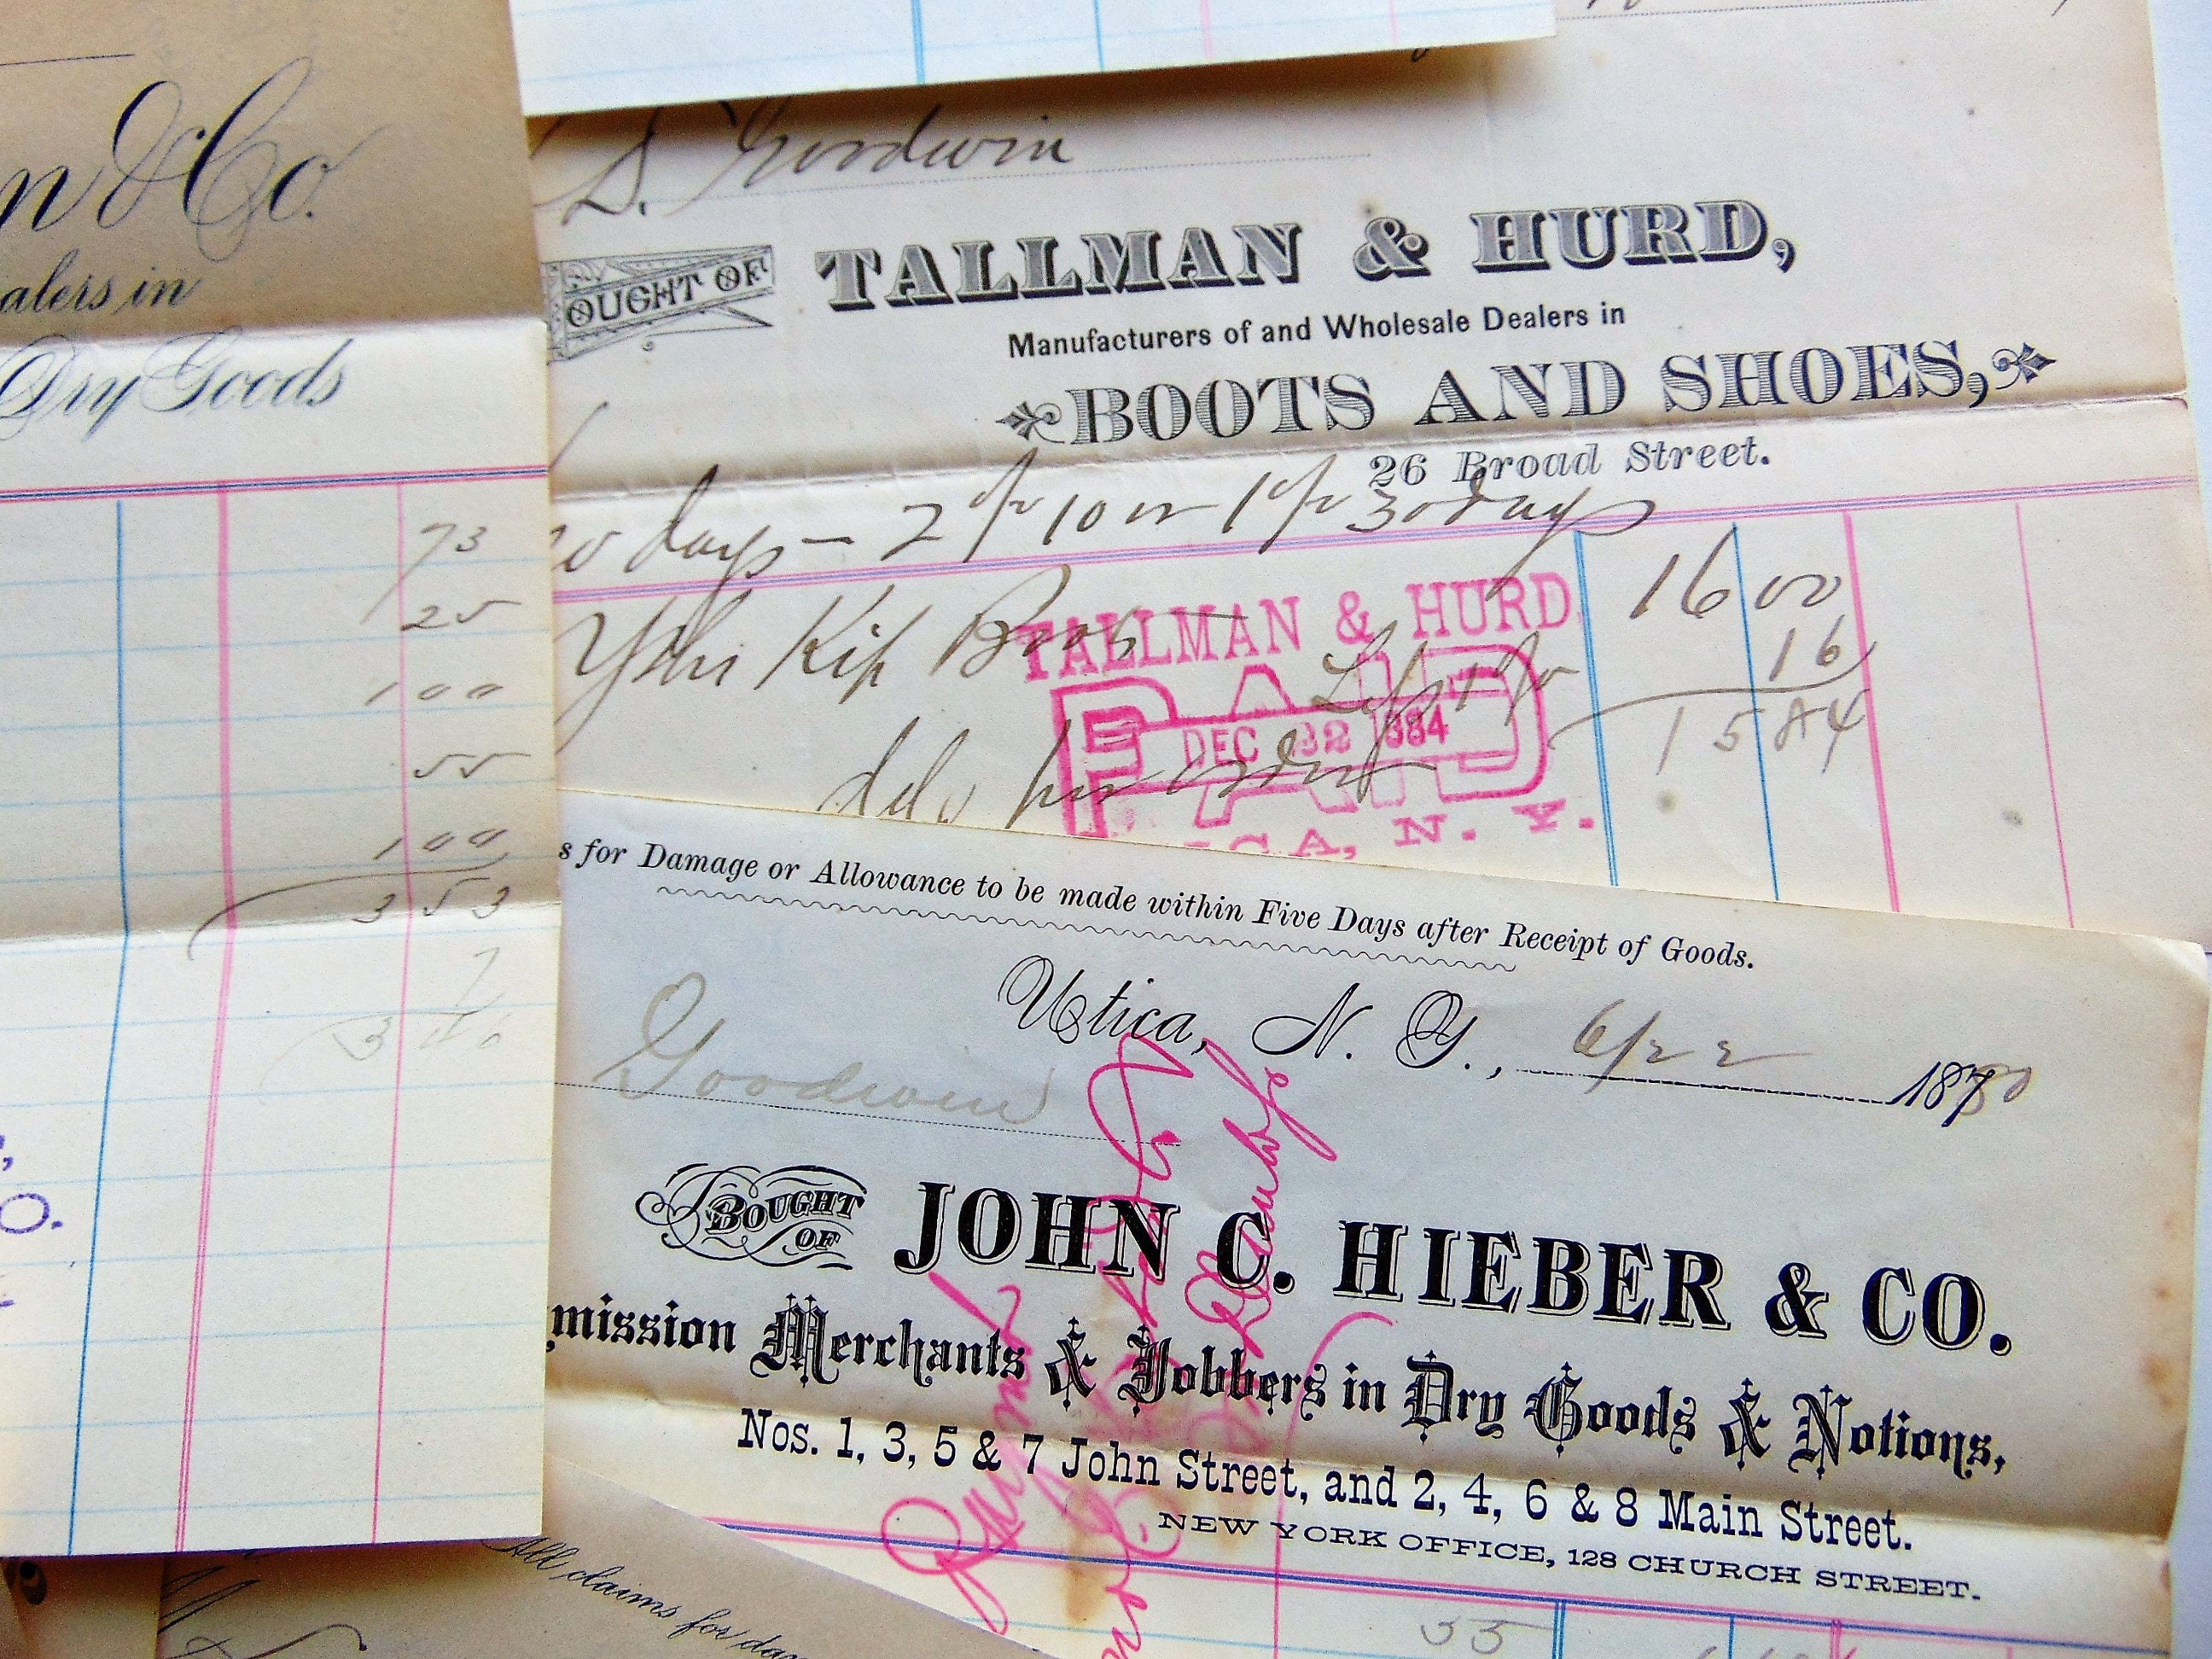 n & Co.
alers in
Dry Goods
73
25
100
55
100
353
7
O.
S. Goodwin
OUGHT OF
TALLMAN & HURD,
Manufacturers of and Wholesale Dealers in
BOOTS AND SHOES,
26 Broad Street.
days — 2% 10 or 1% 30 days
Kip Boots
16 00
Less 1%
16
15 84
TALLMAN & HURD
PAID
DEC 1884
ICA, N. Y.
s for Damage or Allowance to be made within Five Days after Receipt of Goods.
Utica, N. Y., 6/22 1880
Goodwin
BOUGHT OF
JOHN C. HIEBER & CO.
mission Merchants & Jobbers in Dry Goods & Notions,
Nos. 1, 3, 5 & 7 John Street, and 2, 4, 6 & 8 Main Street.
NEW YORK OFFICE, 128 CHURCH STREET.
All claims for da